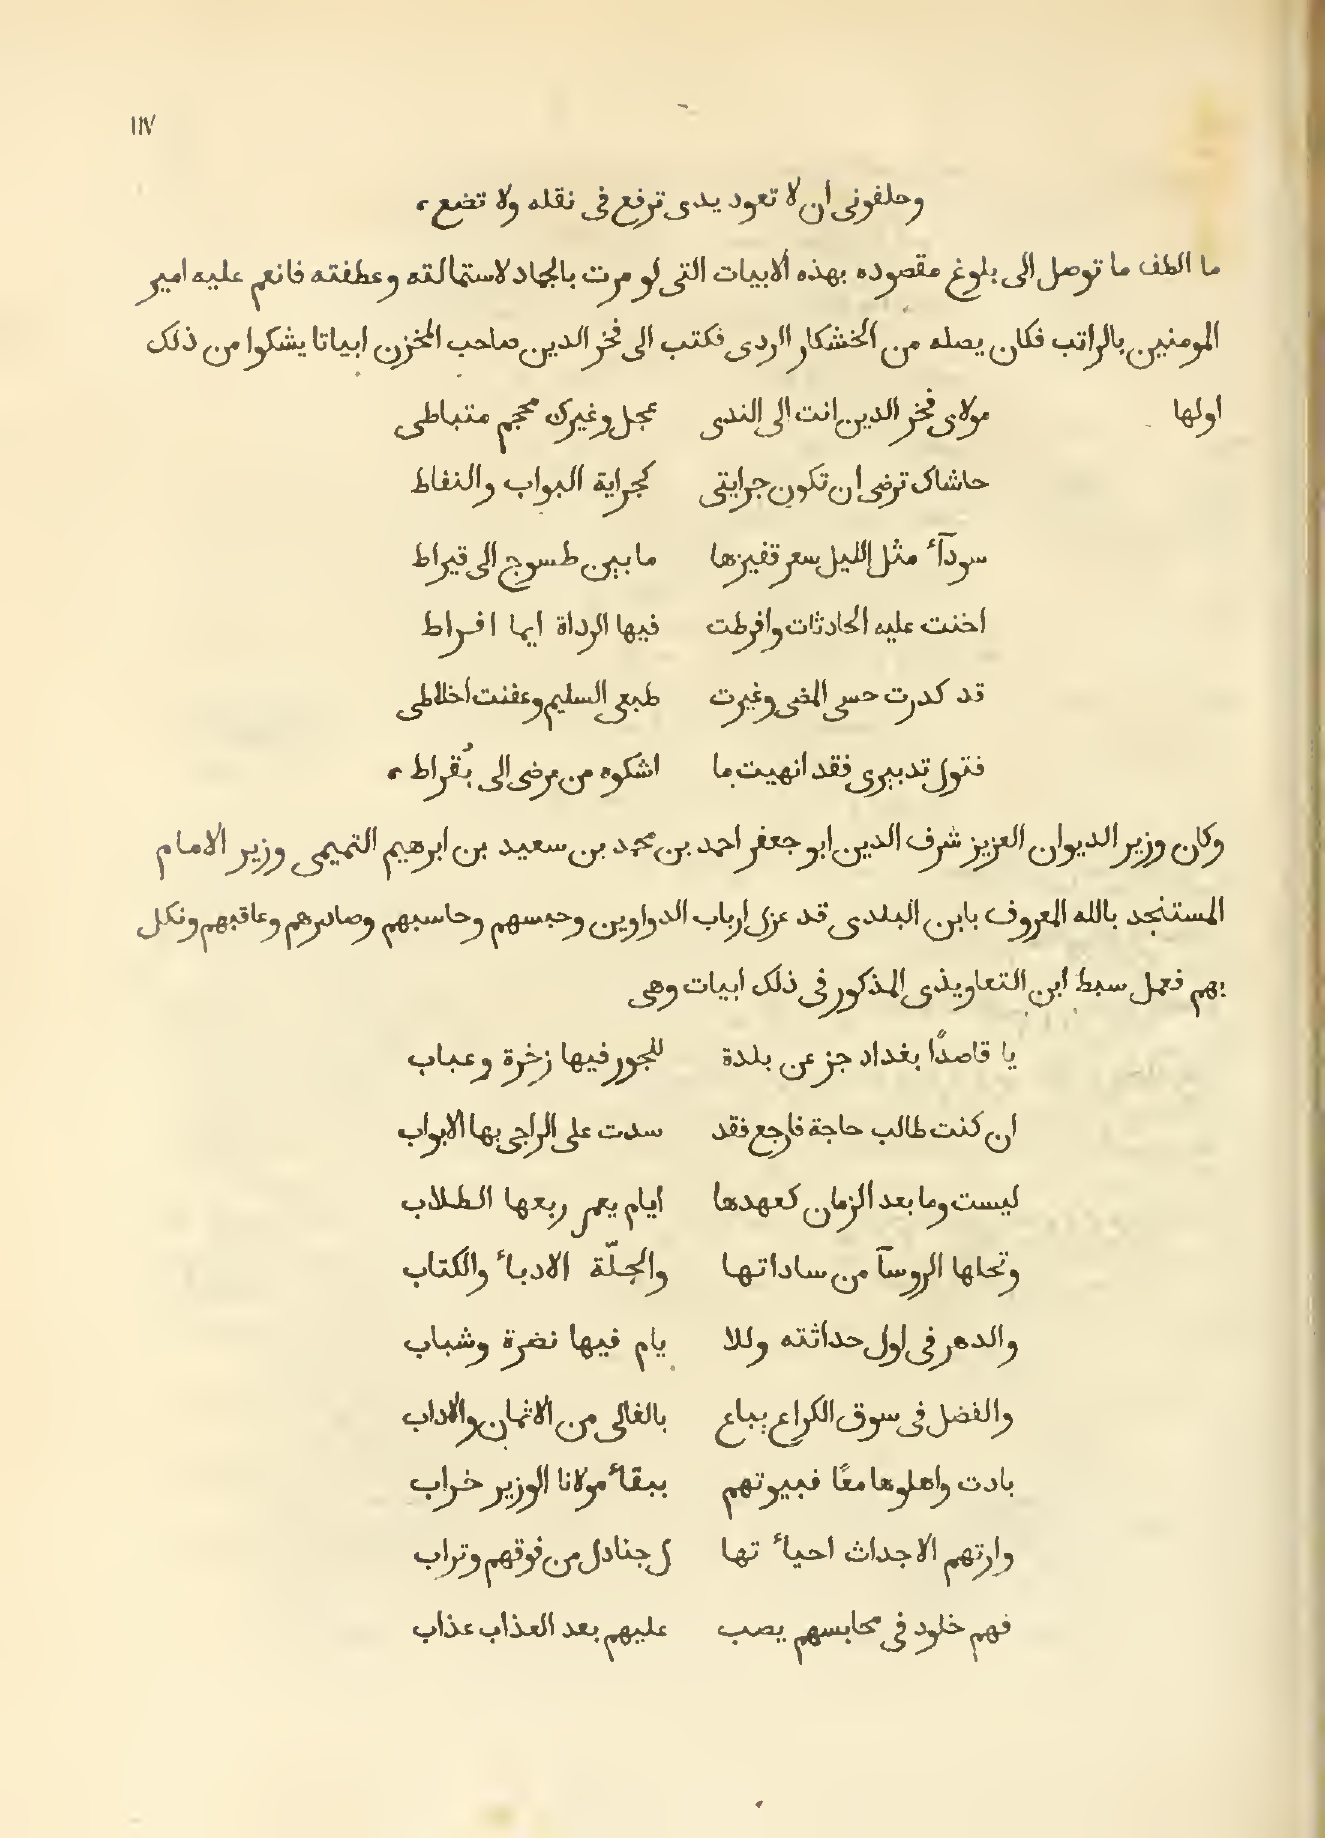 ١١٧
وحلفونى ان لا تعود يدى ترفع فى نقله ولا تضع ،
ما الطف ما توصل الى بلوغ مقصوده بهذه الابيات التى لو مرت بالجماد لاستمالته وعطفته فانعم عليه امير
المومنين بالراتب فكان يصله من الخشكار الردى فكتب الى فخر الدين صاحب المخزن ابياتا يشكوا من ذلك
اولها مولاى فخر الدين انت الى الندى عجل وغيرك محجم متباطى
حاشاك ترضى ان تكون جرايتى كجراية البواب والنفاط
سودآء مثل الليل سعر قفيزها ما بين طسوج الى قيراط
اخنت عليه الحادثات وافرطت فيها الرداة ايما افراط
قد كدرت حسى المضى وغيرت طبعى السليم وعفنت اخلاطى
فتول تدبيرى فقد انهيت ما اشكوه من مرضى الى بُقراط ،
وكان وزير الديوان العزيز شرف الدين ابو جعفر احمد بن محمد بن سعيد بن ابرهيم التميمى وزير الامام
المستنجد بالله المعروف بابن البلدى قد عزل ارباب الدواوين وحبسهم وحاسبهم وصادرهم وعاقبهم ونكل
بهم فعمل سبط ابن التعاويذى المذكور فى ذلك ابيات وهى
يا قاصدًا بغداد جز عن بلدة للجور فيها زخرة وعباب
ان كنت طالب حاجة فارجع فقد سدت على الراجى بها الابواب
ليست وما بعد الزمان كعهدها ايام يعمر ربعها الطلاب
وتحلها الروسآ من ساداتها والجلّة الادباء والكتاب
والدهر فى اول حداثته وللا يام فيها نضرة وشباب
والفضل فى سوق الكراع يباع بالغالى من الاثمان والاداب
بادت واهلوها معًا فبيوتهم ببقاء مولانا الوزير خراب
وارتهم الاجداث احياء تها ل جنادل من فوقهم وتراب
فهم خلود فى محابسهم يصب عليهم بعد العذاب عذاب